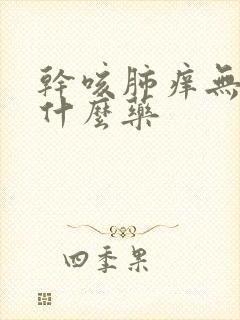 幹咳肺痒無
什麼藥
四季果